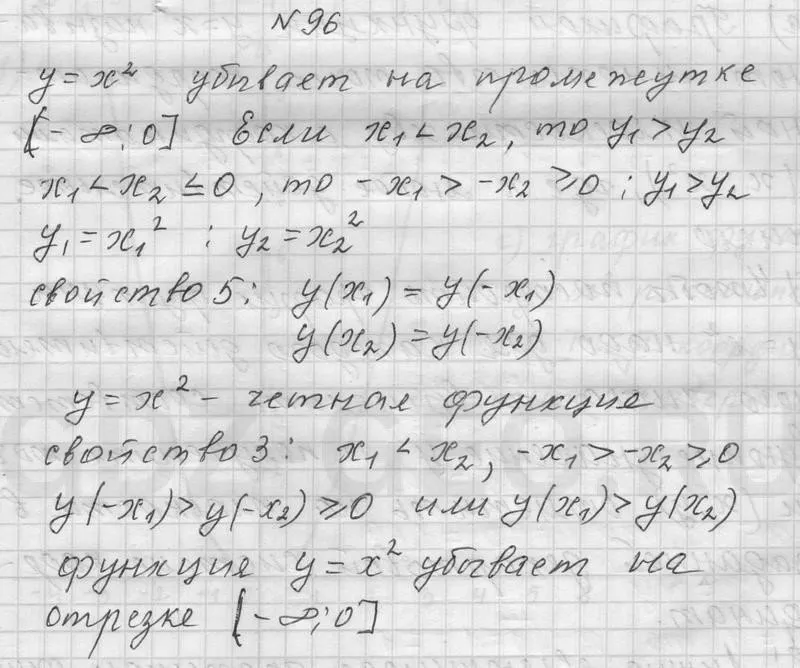 №96
y = x² убывает на промежутке
[-∞; 0] Если x₁ < x₂, то y₁ > y₂
x₁ < x₂ ≤ 0, то -x₁ > -x₂ ≥ 0; y₁ > y₂
y₁ = x₁² ; y₂ = x₂²
свойство 5: y(x₁) = y(-x₁)
y(x₂) = y(-x₂)
y = x² - четная функция
свойство 3: x₁ < x₂, -x₁ > -x₂ ≥ 0
y(-x₁) > y(-x₂) ≥ 0 или y(x₁) > y(x₂)
функция y = x² убывает на
отрезке [-∞; 0]